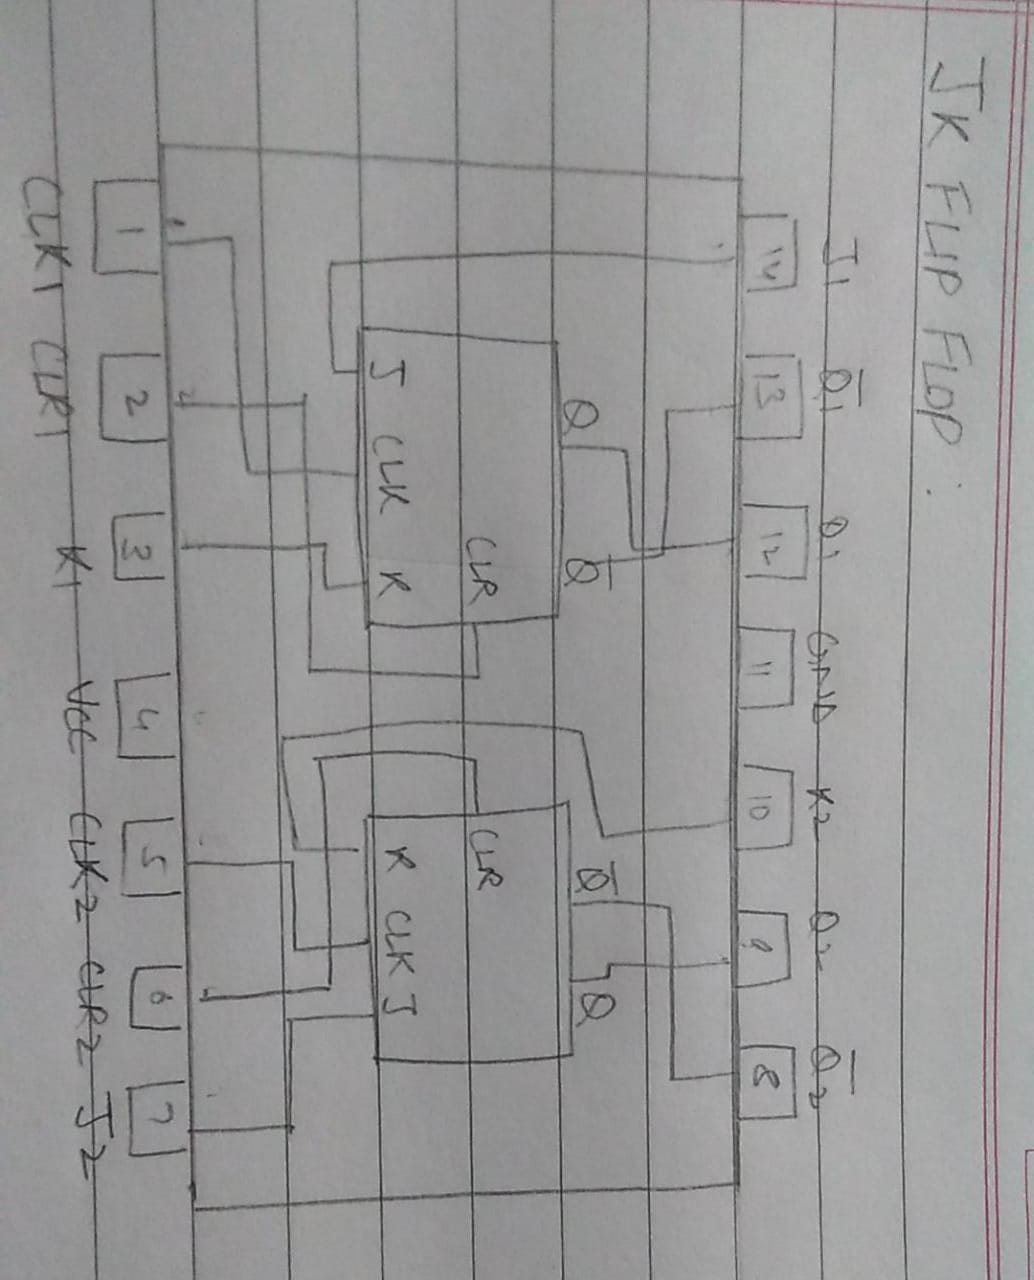 JK FLIP FLOP:
J1 Q̅1 Q1 GND K2 Q2 Q̅2
14 13 12 11 10 9 8
Q Q̅ Q̅ Q
CLR CLR
J CLK K K CLK J
1 2 3 4 5 6 7
CLK1 CLR1 K1 VCC CLK2 CLR2 J2